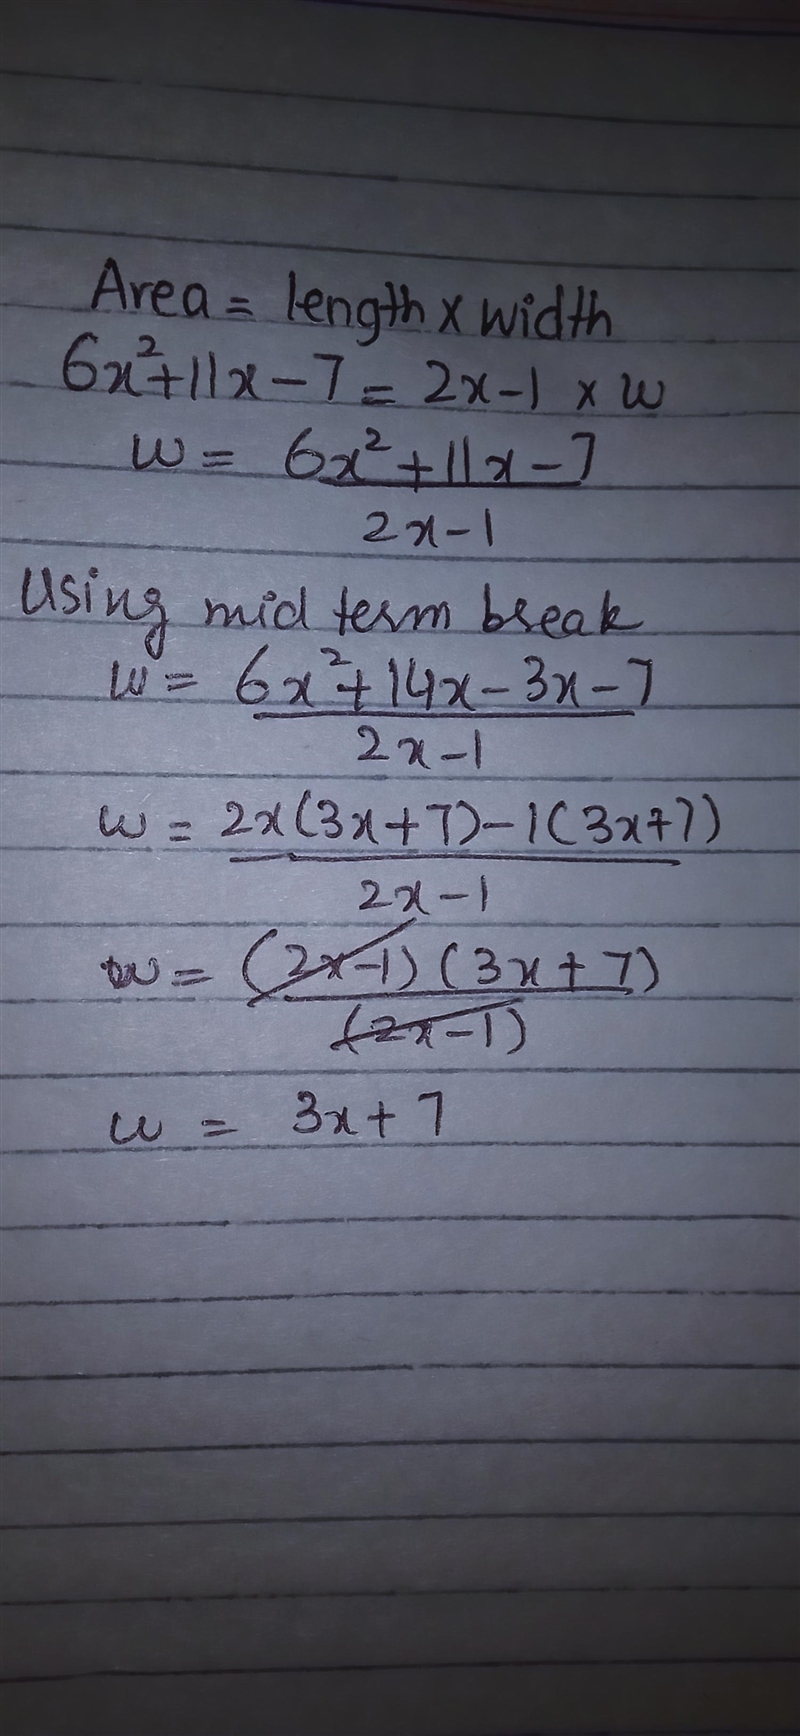 Area = length x width
6x²+11x-7 = 2x-1 x w
w = 6x²+11x-7
2x-1
Using mid term break
w = 6x²+14x-3x-7
2x-1
w = 2x(3x+7)-1(3x+7)
2x-1
w = (2x-1)(3x+7)
(2x-1)
w = 3x+7